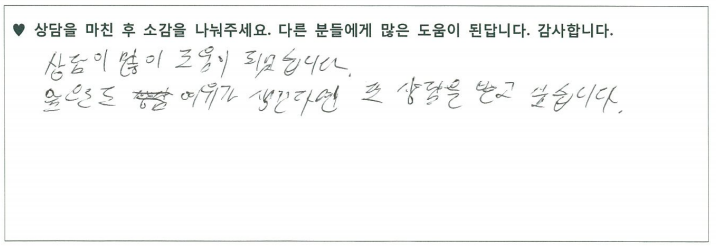 ♥ 상담을 마친 후 소감을 나눠주세요. 다른 분들에게 많은 도움이 된답니다. 감사합니다.
상담이 많이 도움이 되었습니다.
여유가 생긴다면 또 상담을 받고 싶습니다.